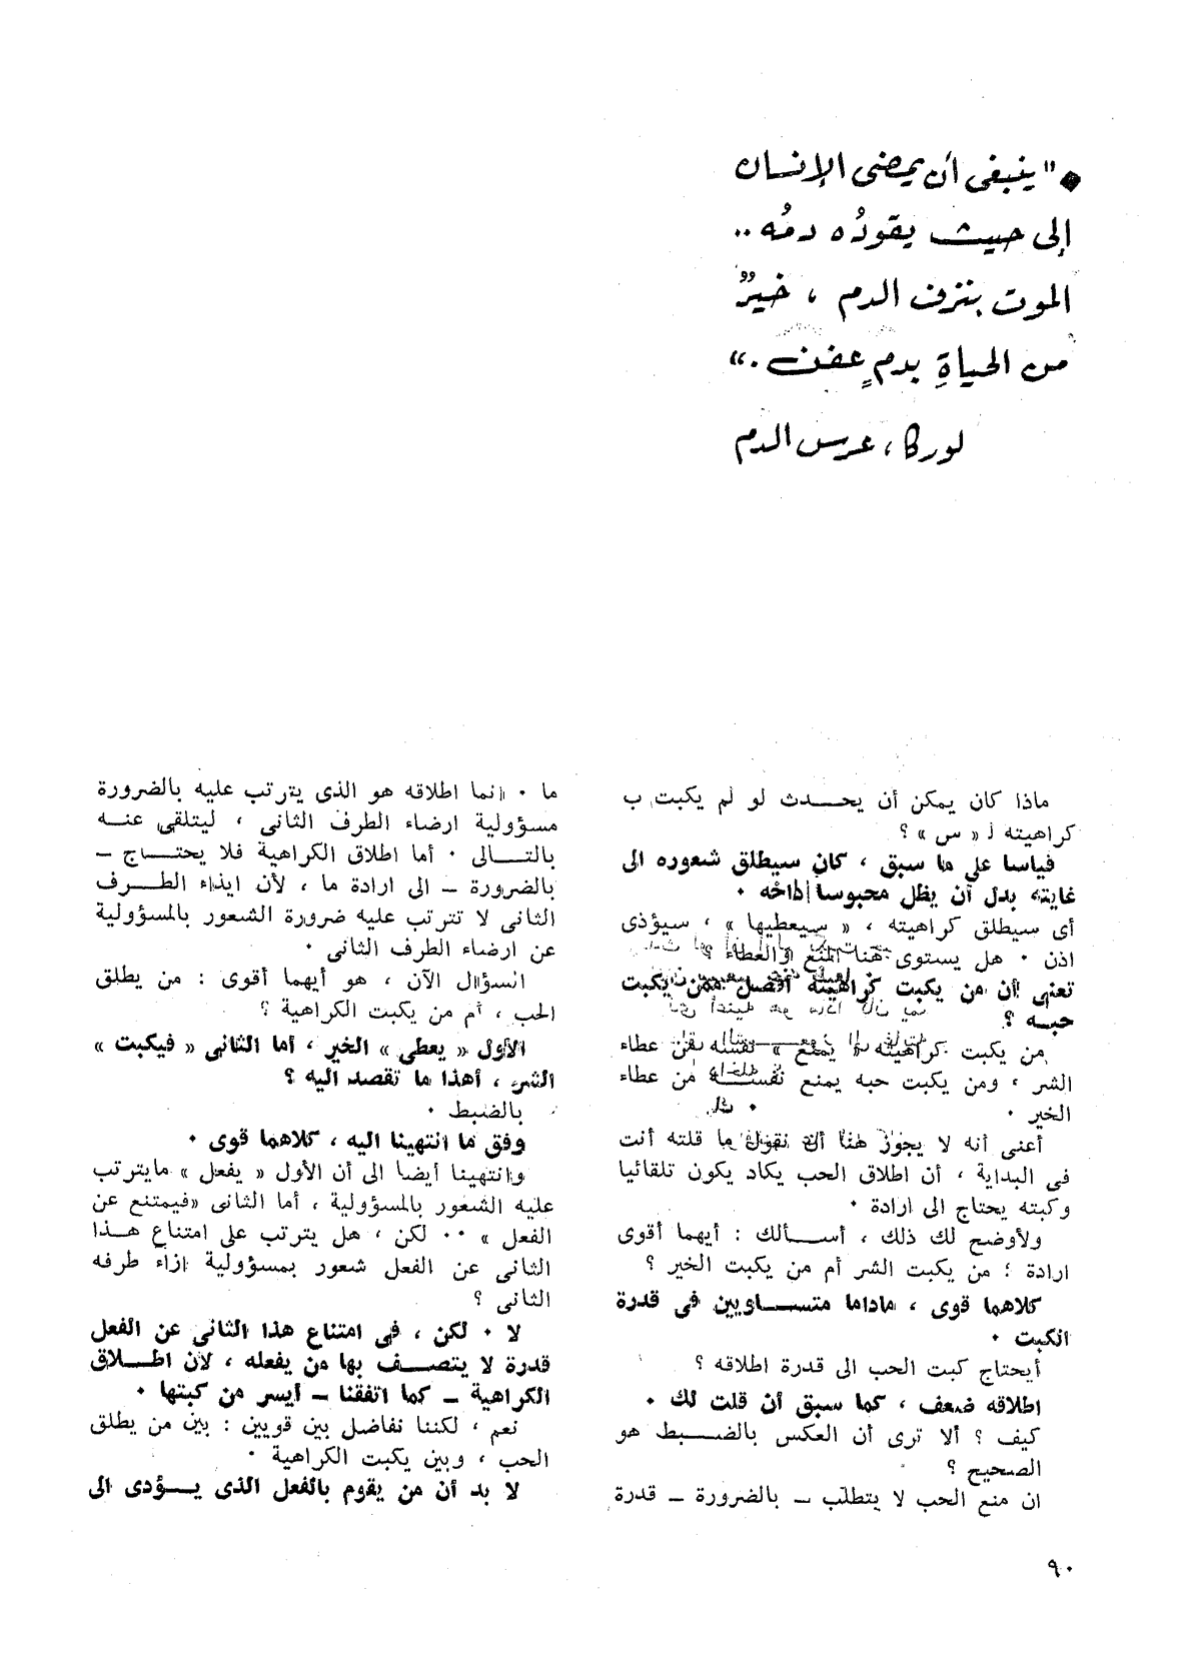 ◆ "ينبغى أن يمضى الإنسان
إلى حيث يقودُه دمُه ..
الموت بنزف الدم ، خيرٌ
من الحياةِ بدمٍ عفن .»
لوركا ، عرس الدم
ماذا كان يمكن أن يحـــدث لو لم يكبت ب
كراهيته لـ « س » ؟
قياسا على ما سبق ، كان سيطلق شعوره الى
غايته بدل أن يظل محبوسا داخله ٠
أى سيطلق كراهيته ، « سيعطيها » ، سيؤذى
اذن ٠ هل يستوى هنا المنع والعطاء ؟
تعنى أن من يكبت كراهيته أفضل ممن يكبت
حبـه ؟
من يكبت كراهيته « يمنع » نفسه عن عطاء
الشر ، ومن يكبت حبه يمنع نفسـه من عطاء
الخير ٠
أعنى أنه لا يجوز هنا أن نقول ما قلته أنت
فى البداية ، أن اطلاق الحب يكاد يكون تلقائيا
وكبته يحتاج الى ارادة ٠
ولأوضح لك ذلك ، أســألك : أيهما أقوى
ارادة ؛ من يكبت الشر أم من يكبت الخير ؟
كلاهما قوى ، ماداما متســـاويين فى قدرة
الكبت ٠
أيحتاج كبت الحب الى قدرة اطلاقه ؟
اطلاقه ضعف ، كما سبق أن قلت لك ٠
كيف ؟ ألا ترى أن العكس بالضـــبط هو
الصحيح ؟
ان منع الحب لا يتطلب – بالضرورة – قدرة
ما ٠ انما اطلاقه هو الذى يترتب عليه بالضرورة
مسؤولية ارضاء الطرف الثانى ، ليتلقى عنــه
بالتــالى ٠ أما اطلاق الكراهية فلا يحتــاج –
بالضرورة – الى ارادة ما ، لأن ايذاء الطــرف
الثانى لا تترتب عليه ضرورة الشعور بالمسؤولية
عن ارضاء الطرف الثانى ٠
السؤال الآن ، هو أيهما أقوى : من يطلق
الحب ، أم من يكبت الكراهية ؟
الأول « يعطى » الخير ، أما الثانى « فيكبت »
الشر ، أهذا ما تقصد اليه ؟
بالضبط ٠
وفق ما انتهينا اليه ، كلاهما قوى ٠
وانتهينا أيضا الى أن الأول « يفعل » مايترتب
عليه الشعور بالمسؤولية ، أما الثانى «فيمتنع عن
الفعل » ٠٠ لكن ، هل يترتب على امتناع هــذا
الثانى عن الفعل شعور بمسؤولية ازاء طرفه
الثانى ؟
لا ٠ لكن ، فى امتناع هذا الثانى عن الفعل
قدرة لا يتصــف بها من يفعله ، لأن اطــلاق
الكراهية – كما اتفقنا – أيسر من كبتها ٠
نعم ، لكننا نفاضل بين قويين : بين من يطلق
الحب ، وبين يكبت الكراهية ٠
لا بد أن من يقوم بالفعل الذى يــؤدى الى
٩٠